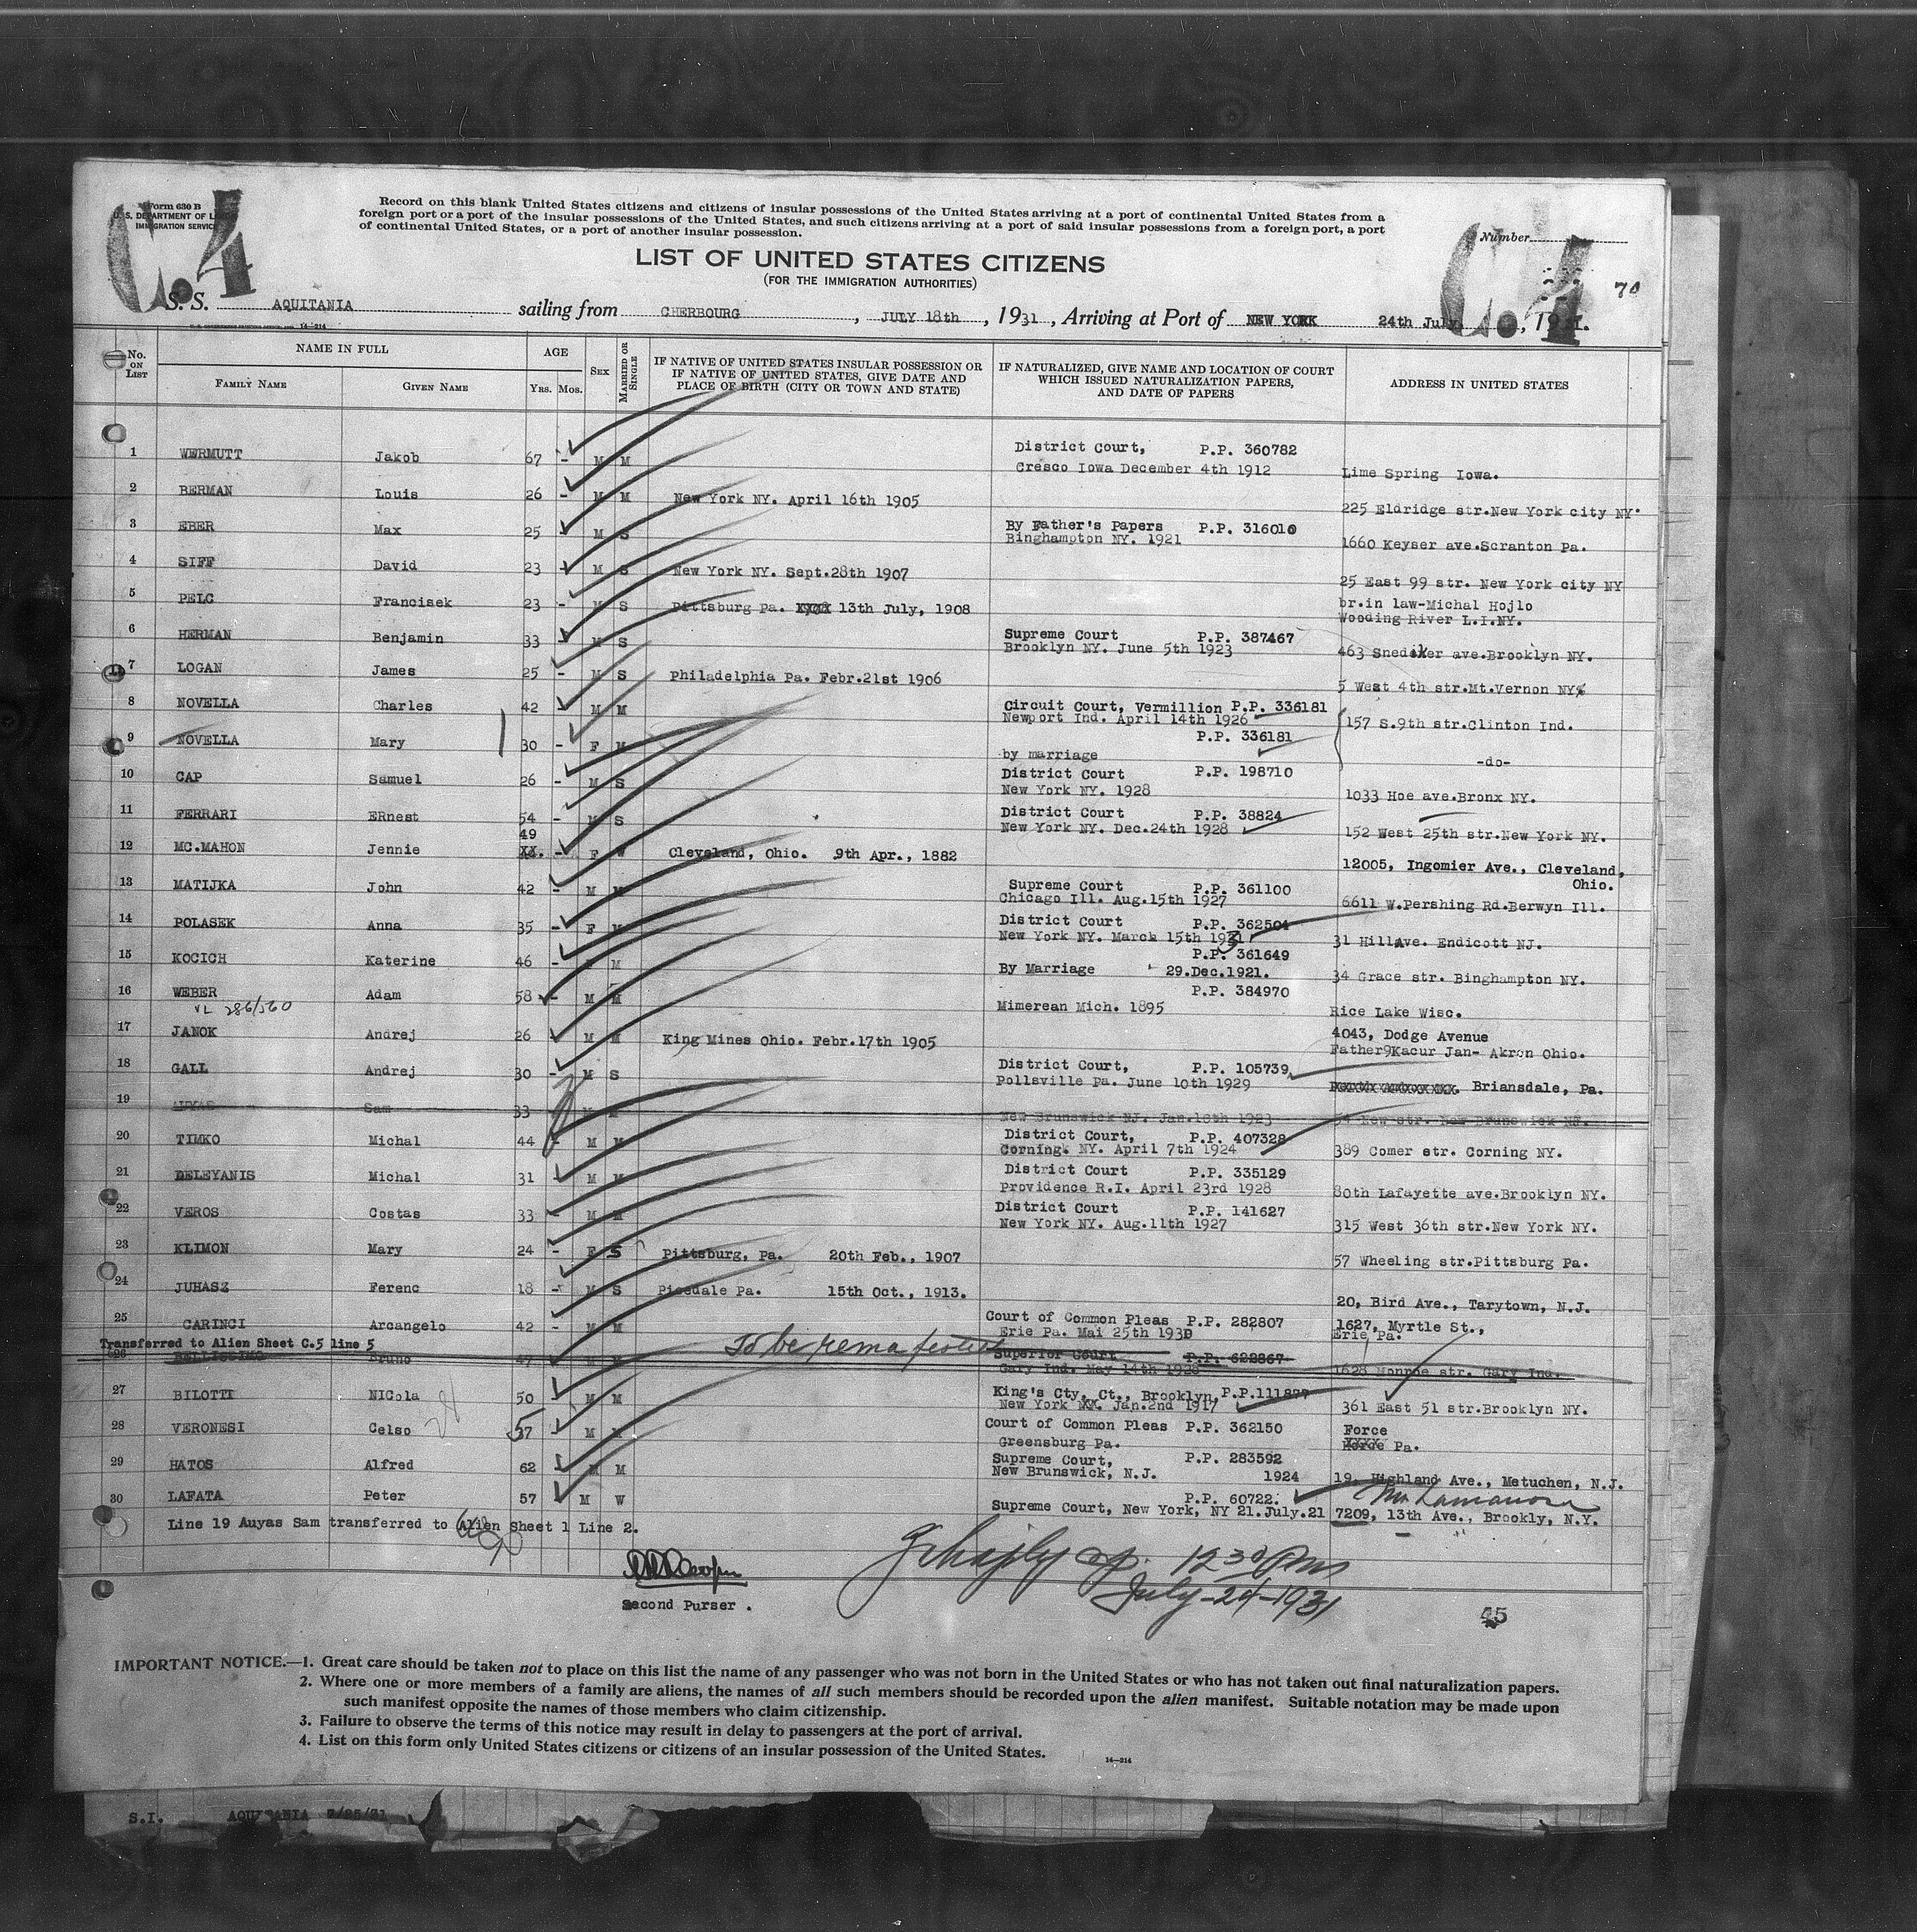 C.4
Form 630 B
U. S. DEPARTMENT OF LABOR
IMMIGRATION SERVICE
Record on this blank United States citizens and citizens of insular possessions of the United States arriving at a port of continental United States from a
foreign port or a port of the insular possessions of the United States, and such citizens arriving at a port of said insular possessions from a foreign port, a port
of continental United States, or a port of another insular possession.
Number
C.4
70
LIST OF UNITED STATES CITIZENS
(FOR THE IMMIGRATION AUTHORITIES)
S. S. AQUITANIA sailing from CHERBOURG, JULY 18th, 1931, Arriving at Port of NEW YORK 24th July, 1931.
14-214
No. ON LIST
NAME IN FULL
FAMILY NAME
GIVEN NAME
AGE
YRS. MOS.
SEX
MARRIED OR SINGLE
IF NATIVE OF UNITED STATES INSULAR POSSESSION OR
IF NATIVE OF UNITED STATES, GIVE DATE AND
PLACE OF BIRTH (CITY OR TOWN AND STATE)
IF NATURALIZED, GIVE NAME AND LOCATION OF COURT
WHICH ISSUED NATURALIZATION PAPERS,
AND DATE OF PAPERS
ADDRESS IN UNITED STATES
1 WERMUTT Jakob 67 - M M District Court, P.P. 360782
Cresco Iowa December 4th 1912 Lime Spring Iowa.
2 BERMAN Louis 26 - M M New York NY. April 16th 1905
225 Eldridge str.New York city NY.
3 EBER Max 25 - M S By Father's Papers P.P. 316010
Binghampton NY. 1921 1660 Keyser ave.Scranton Pa.
4 SIFF David 23 - M S New York NY. Sept.28th 1907
25 East 99 str. New York city NY
5 PELC Francisek 23 - M S Pittsburg Pa. 13th July, 1908 br.in law-Michal Hojlo
Wooding River L.I.NY.
6 HERMAN Benjamin 33 - M S Supreme Court P.P. 387467
Brooklyn NY. June 5th 1923 463 Snediker ave.Brooklyn NY.
7 LOGAN James 25 - M S Philadelphia Pa. Febr.21st 1906
5 West 4th str.Mt.Vernon NY
8 NOVELLA Charles 42 - M M Circuit Court, Vermillion P.P. 336181
Newport Ind. April 14th 1926 157 S.9th str.Clinton Ind.
9 NOVELLA Mary 30 - F M P.P. 336181
by marriage -do-
10 CAP Samuel 26 - M S District Court P.P. 198710
New York NY. 1928 1033 Hoe ave.Bronx NY.
11 FERRARI ERnest 54 - M S District Court P.P. 38824
New York NY. Dec.24th 1928 152 West 25th str.New York NY.
49
12 MC.MAHON Jennie XX. - F W Cleveland, Ohio. 9th Apr., 1882
12005, Ingomier Ave., Cleveland,
Ohio.
13 MATIJKA John 42 - M M Supreme Court P.P. 361100
Chicago Ill. Aug.15th 1927 6611 W.Pershing Rd.Berwyn Ill.
14 POLASEK Anna 35 - F M District Court P.P. 362504
New York NY. March 15th 1931 31 HillAve. Endicott NJ.
15 KOCICH Katerine 46 - M P.P. 361649
By Marriage 29.Dec.1921. 34 Grace str. Binghampton NY.
16 WEBER Adam 58 - M M P.P. 384970
VL 286/560 Mimerean Mich. 1895 Rice Lake Wisc.
17 JANOK Andrej 26 M M King Mines Ohio. Febr.17th 1905 4043, Dodge Avenue
Father9Kacur Jan- Akron Ohio.
18 GALL Andrej 30 - M S District Court, P.P. 105739
Pollsville Pa. June 10th 1929 Briansdale, Pa.
19 AUYAS Sam 33 M M
New Brunswick NJ. Jan.18th 1923 54 New str. New Brunswick NJ.
20 TIMKO Michal 44 - M M District Court, P.P. 407328
Corning. NY. April 7th 1924 389 Comer str. Corning NY.
21 DELEYANIS Michal 31 M M District Court P.P. 335129
Providence R.I. April 23rd 1928 80th Lafayette ave.Brooklyn NY.
22 VEROS Costas 33 - M M District Court P.P. 141627
New York NY. Aug.11th 1927 315 West 36th str.New York NY.
23 KLIMON Mary 24 - F S Pittsburg, Pa. 20th Feb., 1907
57 Wheeling str.Pittsburg Pa.
24 JUHASZ Ferenc 18 - M S Picedale Pa. 15th Oct., 1913.
20, Bird Ave., Tarytown, N.J.
25 CARINCI Arcangelo 42 - M M Court of Common Pleas P.P. 282807 1627, Myrtle St.,
Erie Pa. Mai 25th 1930 Erie Pa.
Transferred to Alien Sheet C.5 line 5
To be remanifested
26 BELLISSIMO Bruno 47 M M Superior Court P.P. 622867
Gary Ind. May 14th 1928 1628 Monroe str. Gary Ind.
27 BILOTTI NICola 50 - M M King's Cty, Ct., Brooklyn P.P.111877
New York Jan.2nd 1917 361 East 51 str.Brooklyn NY.
28 VERONESI Celso 37 - M M Court of Common Pleas P.P. 362150 Force
Greensburg Pa. Pa.
29 HATOS Alfred 62 - M M Supreme Court, P.P. 283592
New Brunswick, N.J. 1924 19, Highland Ave., Metuchen, N.J.
30 LAFATA Peter 57 M W P.P. 60722.
Supreme Court, New York, NY 21.July.21 7209, 13th Ave., Brookly, N.Y.
Line 19 Auyas Sam transferred to Alien Sheet 1 Line 2.
12 30 Pm
July-24-1931
Second Purser .
45
IMPORTANT NOTICE.—1. Great care should be taken not to place on this list the name of any passenger who was not born in the United States or who has not taken out final naturalization papers.
2. Where one or more members of a family are aliens, the names of all such members should be recorded upon the alien manifest. Suitable notation may be made upon
such manifest opposite the names of those members who claim citizenship.
3. Failure to observe the terms of this notice may result in delay to passengers at the port of arrival.
4. List on this form only United States citizens or citizens of an insular possession of the United States.
14-214
S.I. AQUITANIA 7/25/31